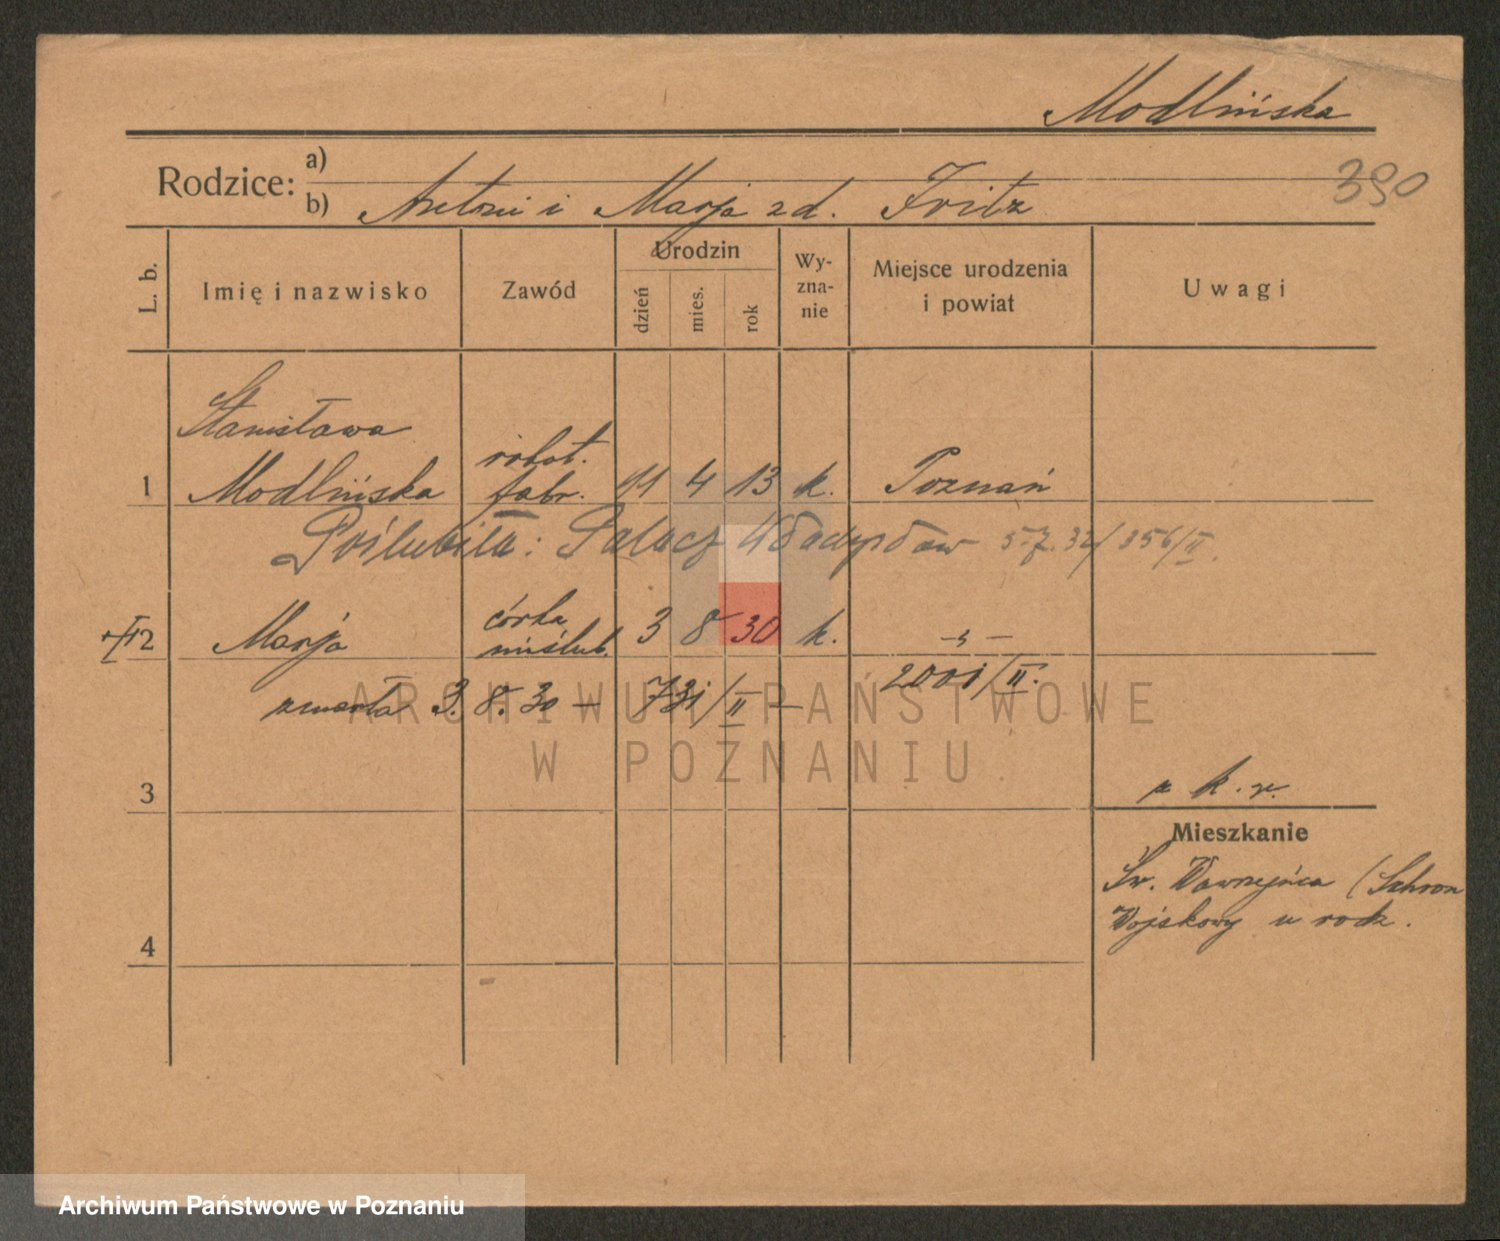 Modlińska
390
Rodzice: a)
b) Antoni i Marja zd. Fritz
L. b.
Imię i nazwisko
Zawód
Urodzin
dzień
mies.
rok
Wy-
zna-
nie
Miejsce urodzenia
i powiat
Uwagi
Stanisława
robot.
1 Modlińska fabr. 11 4 13 k. Poznań
Poślubiła: Palacz Władysław 5.7.32/356/II.
córka
2 Marja nieślub. 3 8 30 k. -"-
2001/II.
zmarła 3. 8. 30 - 731/II -
ARCHIWUM PAŃSTWOWE
W POZNANIU
3
z k. r.
Mieszkanie
Św. Wawrzyńca (Schron
Wojskowy u rodz.
4
Archiwum Państwowe w Poznaniu